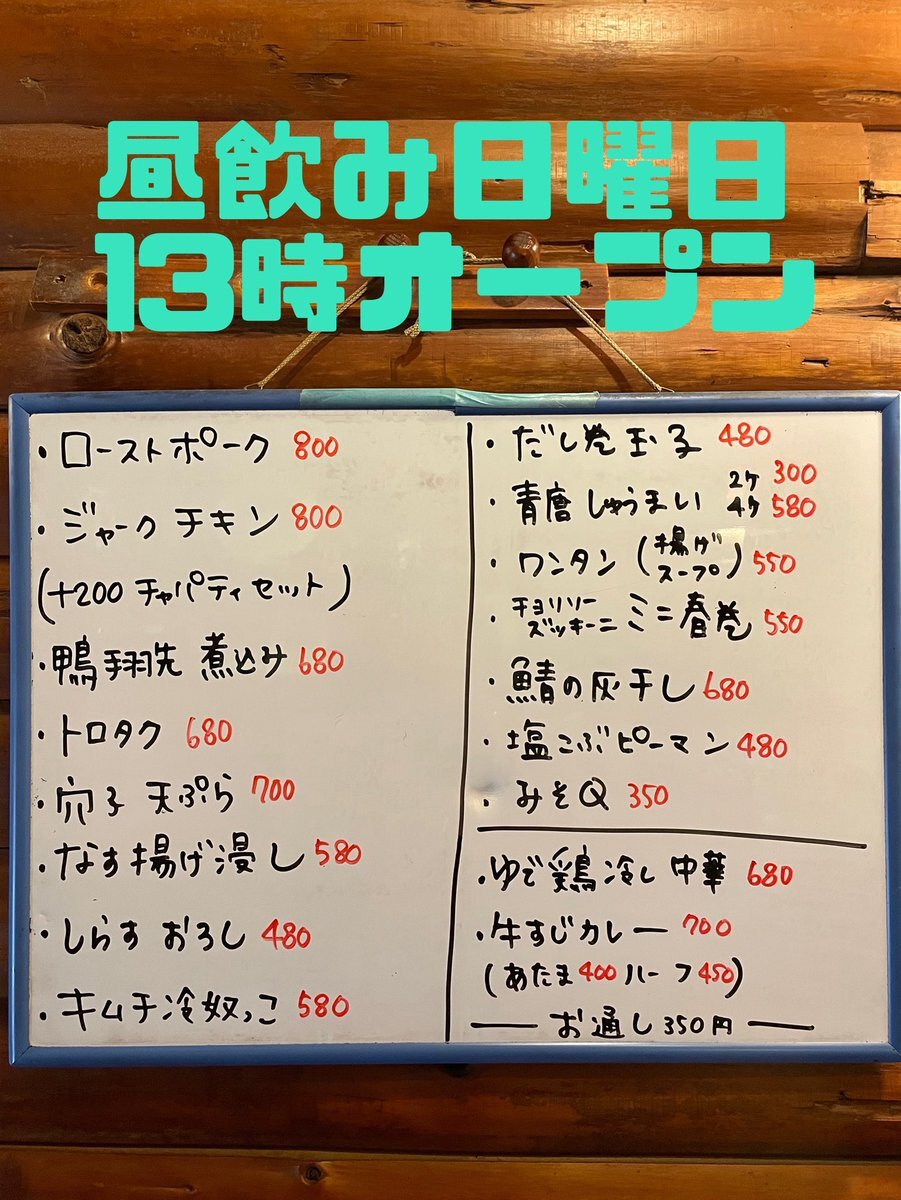 昼飲み日曜日
13時オープン
・ローストポーク 800
・ジャークチキン 800
(+200 チャパティセット)
・鴨手羽先 煮込み 680
・トロタク 680
・穴子 天ぷら 700
・なす揚げ浸し 580
・しらす おろし 480
・キムチ冷奴っこ 580
・だし巻玉子 480
・青唐しゅうまい 2ケ 300
4ケ 580
・ワンタン (揚げ スープ) 550
・チョリソー ズッキーニ ミニ春巻 550
・鯖の灰干し 680
・塩こぶピーマン 480
・みそQ 350
・ゆで鶏冷し中華 680
・牛すじカレー 700
(あたま400 ハーフ450)
お通し350円